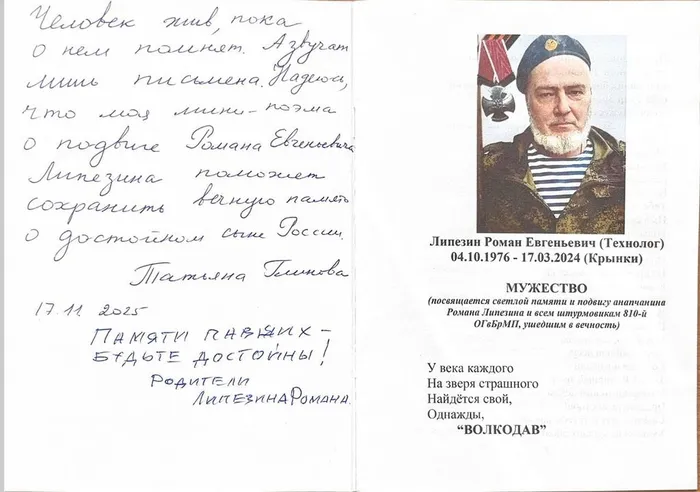 Человек жив, пока
о нем помнят. А звучат
лишь письмена. Надеюсь,
что моя мини-поэма
о подвиге Романа Евгеньевича
Липезина поможет
сохранить вечную память
о достойном сыне России.
Татьяна
17.11 2025
ПАМЯТИ ПАВШИХ -
БУДЬТЕ ДОСТОЙНЫ!
РОДИТЕЛИ
ЛИПЕЗИНА РОМАНА.
Липезин Роман Евгеньевич (Технолог)
04.10.1976 - 17.03.2024 (Крынки)
МУЖЕСТВО
(посвящается светлой памяти и подвигу анапчанина
Романа Липезина и всем штурмовикам 810-й
ОГвБрМП, ушедшим в вечность)
У века каждого
На зверя страшного
Найдётся свой,
Однажды,
“ВОЛКОДАВ”